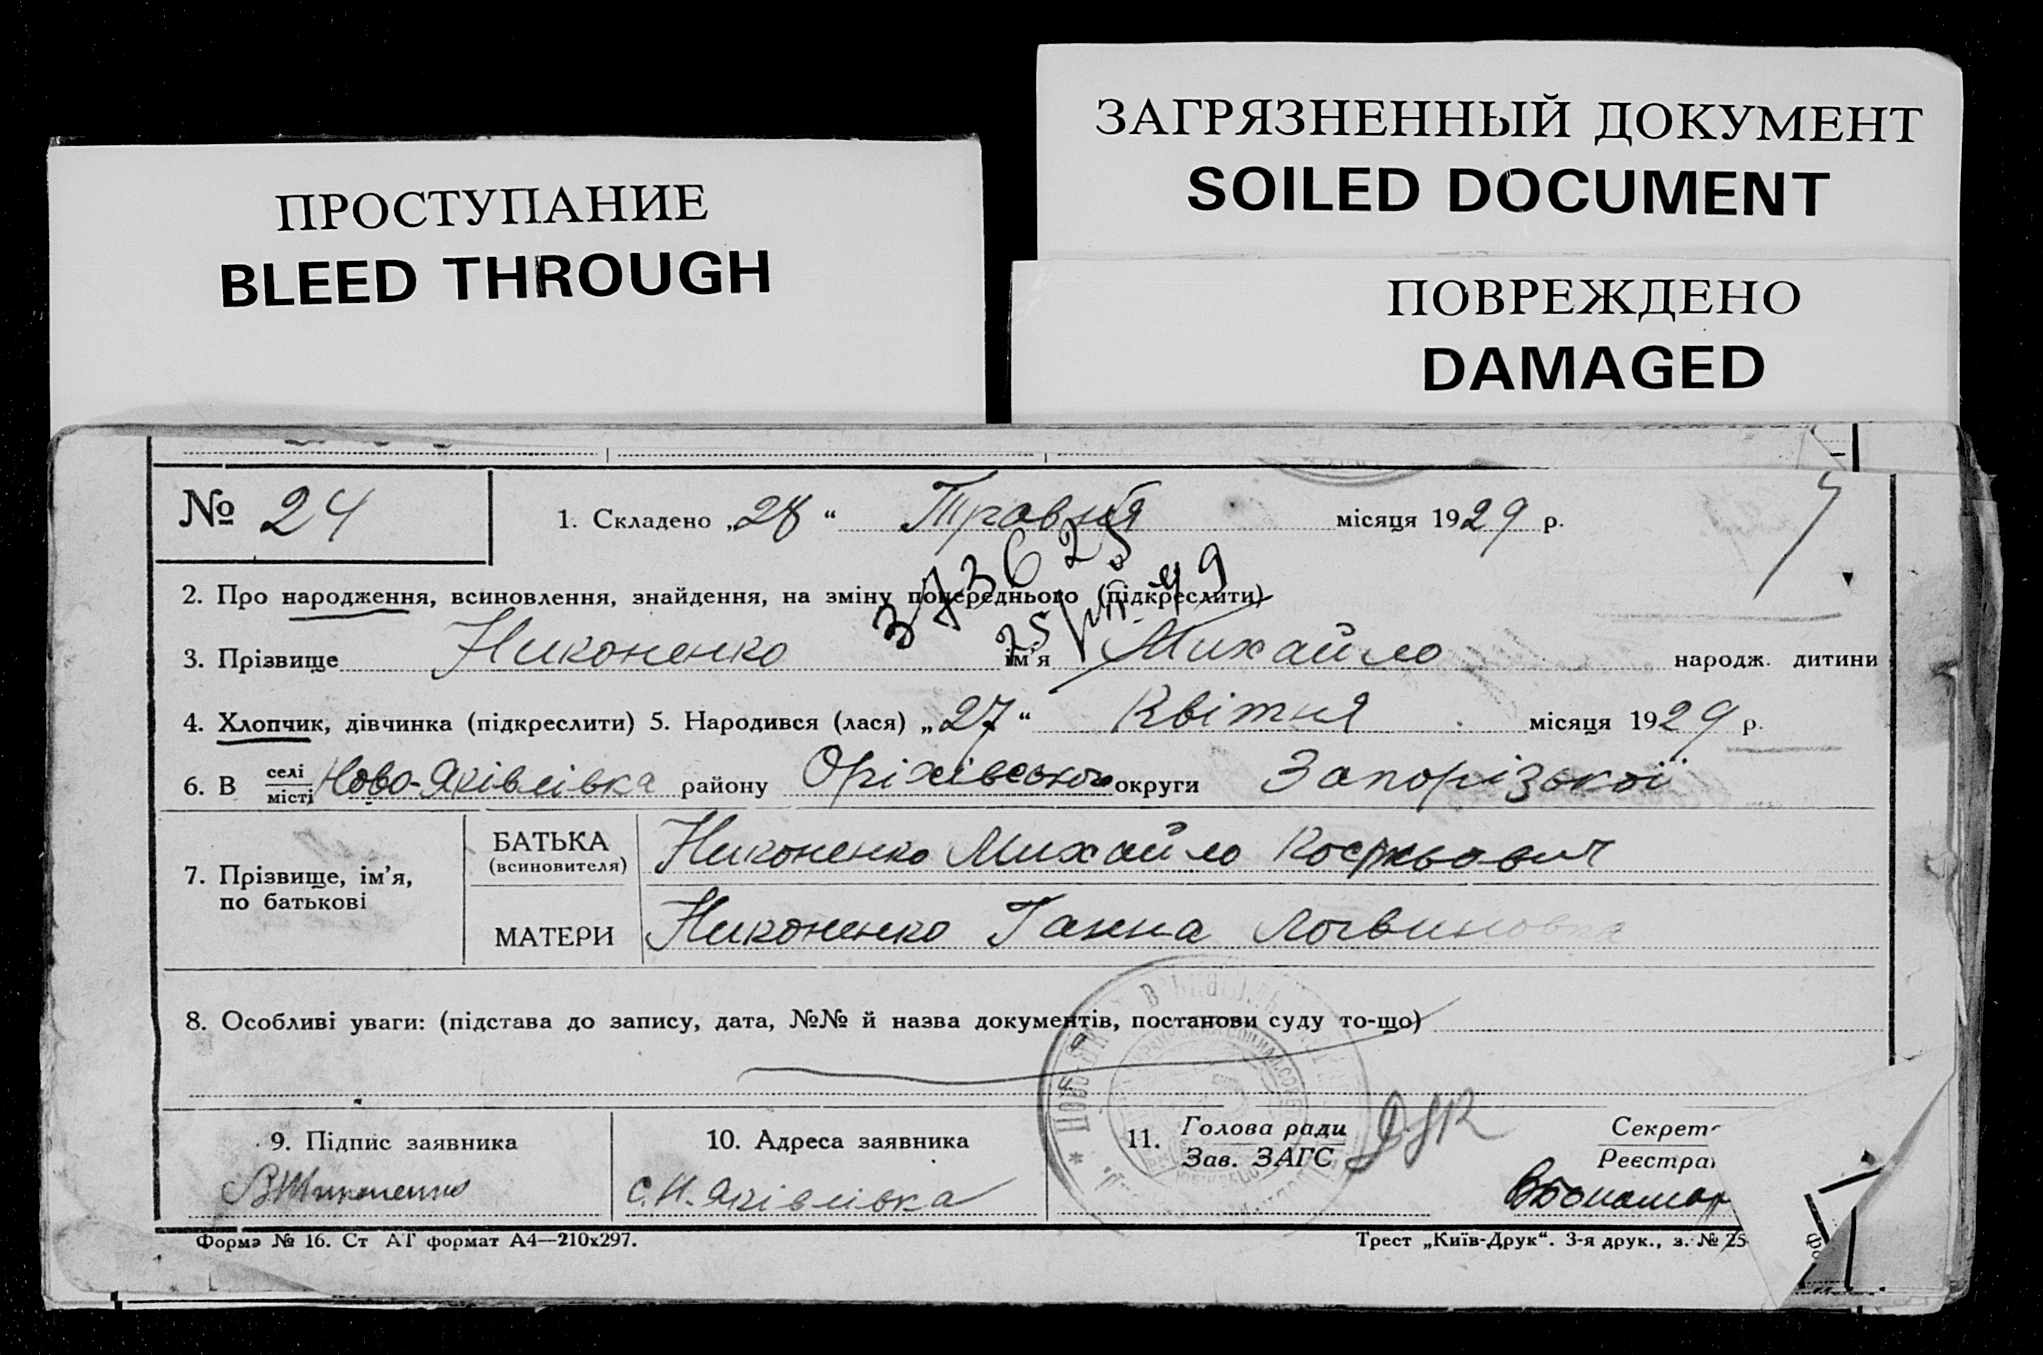 ПРОСТУПАНИЕ
BLEED THROUGH
ЗАГРЯЗНЕННЫЙ ДОКУМЕНТ
SOILED DOCUMENT
ПОВРЕЖДЕНО
DAMAGED
№ 24
1. Складено „28“ Травня місяця 1929 р.
373625
2. Про народження, всиновлення, знайдення, на зміну попереднього (підкреслити)
25/VII-49
3. Прізвище Никоненко ім'я Михайло народж. дитини
4. Хлопчик, дівчинка (підкреслити) 5. Народився (лася) „27“ Квітня місяця 1929 р.
6. В селі місті Ново-Яківлівка району Оріхівського округи Запорізької
7. Прізвище, ім'я, по батькові
БАТЬКА (всиновителя) Никоненко Михайло
МАТЕРИ Никоненко Ганна Логвиновна
8. Особливі уваги: (підстава до запису, дата, №№ й назва документів, постанови суду то-що)
9. Підпис заявника
Никоненко
10. Адреса заявника
с. Н. Яківлівка
11. Голова ради
Зав. ЗАГС
Секрет
Реєстра
Форма № 16. Ст АТ формат А4—210х297.
Трест „Київ-Друк“. 3-я друк., з. № 25